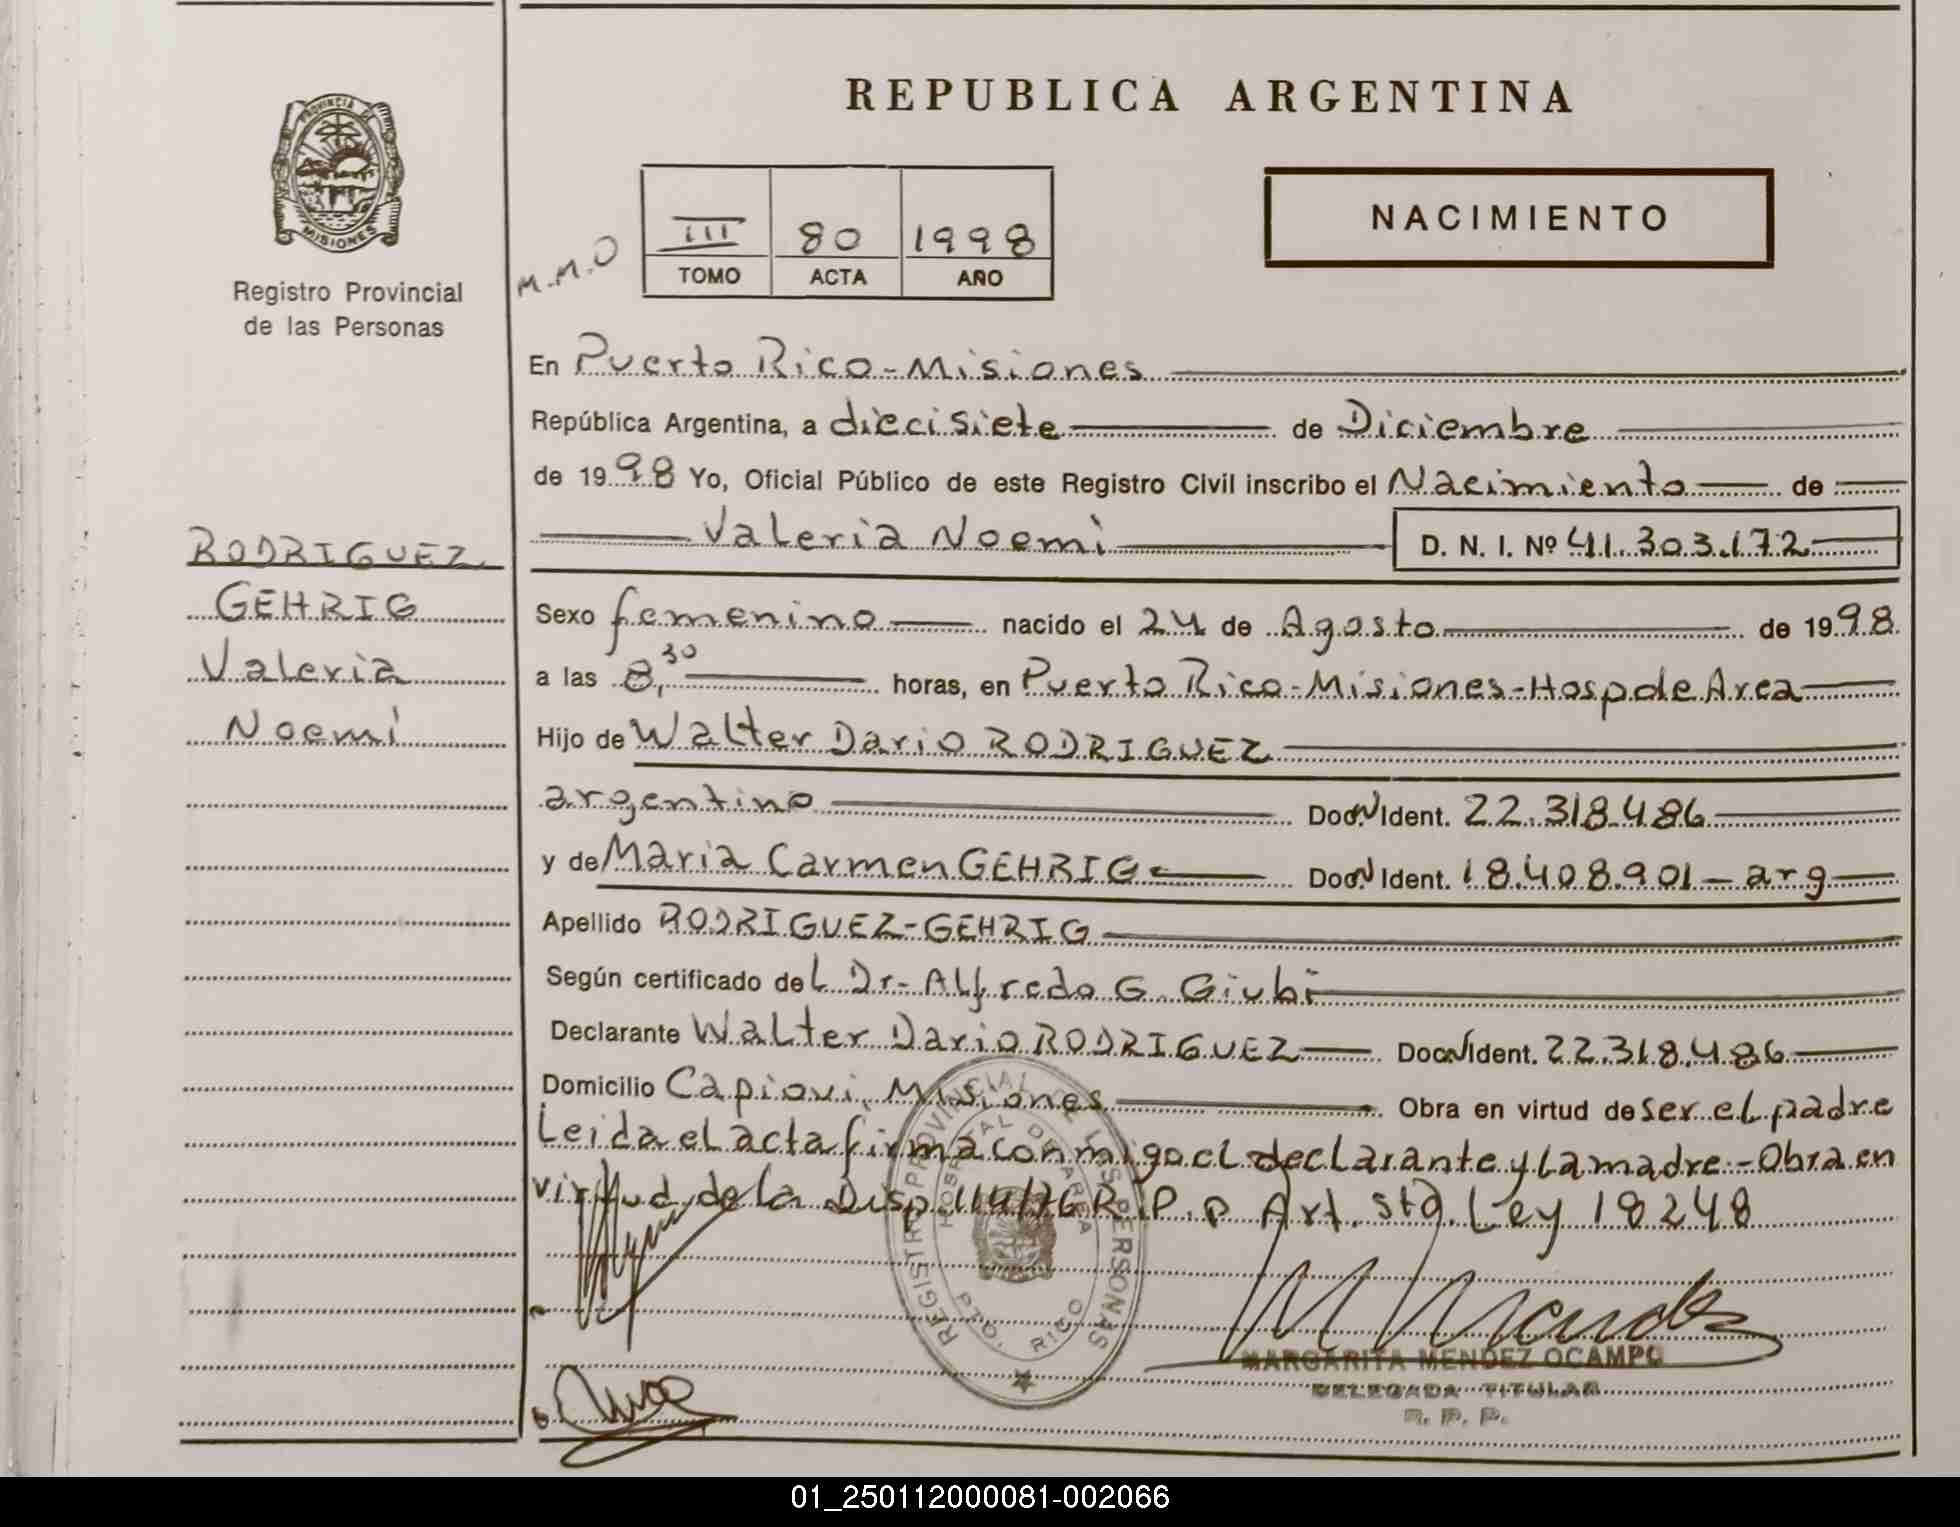 REPUBLICA ARGENTINA
PROVINCIA DE
MISIONES
Registro Provincial
de las Personas
M.M.O
III 80 1998
TOMO ACTA AÑO
NACIMIENTO
En Puerto Rico-Misiones
República Argentina, a diecisiete de Diciembre
de 1998 Yo, Oficial Público de este Registro Civil inscribo el Nacimiento de
Valeria Noemi D. N. I. Nº 41.303.172
RODRIGUEZ
GEHRIG
Valeria
Noemi
Sexo femenino nacido el 24 de Agosto de 1998
a las 8,30 horas, en Puerto Rico-Misiones-Hosp de Area
Hijo de Walter Dario RODRIGUEZ
argentino Doc.N Ident. 22.318.486
y de Maria Carmen GEHRIG Doc.N Ident. 18.408.901-arg
Apellido RODRIGUEZ-GEHRIG
Según certificado del Dr- Alfredo G. Giubi
Declarante Walter Dario RODRIGUEZ Doc.N Ident. 22.318.486
Domicilio Capiovi, Misiones Obra en virtud de ser el padre
Leida el acta firma conmigo el declarante y la madre.-Obra en
virtud de la Disp 114/76 R.P.P Art. 5to. Ley 18248
REGISTRO PROVINCIAL DE LAS PERSONAS
HOSPITAL DE AREA
PTO. RICO
M Mendez
MARGARITA MENDEZ OCAMPO
DELEGADA TITULAR
R. P. P.
01_250112000081-002066